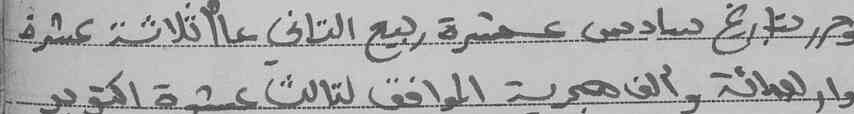 وحرر بتاريخ سادس عشرة ربيع التاني عام ثلاثة عشرة
واربعمائة والف هجرية الموافق لتالث عشرة اكتوبر